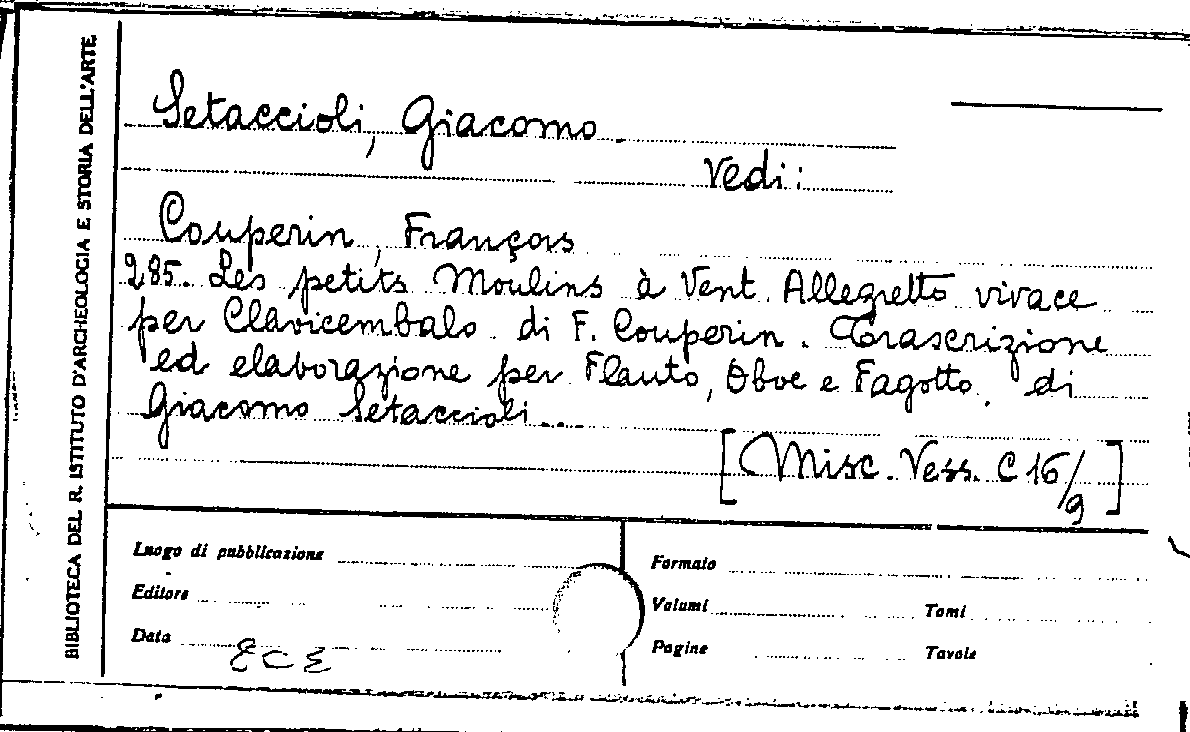 BIBLIOTECA DEL R. ISTITUTO D'ARCHEOLOGIA E STORIA DELL'ARTE
Setaccioli, Giacomo.
Vedi:
Couperin, François
285. Les petits Moulins à Vent. Allegretto vivace
per Clavicembalo di F. Couperin. Trascrizione
ed elaborazione per Flauto, Oboe e Fagotto, di
Giacomo Setaccioli...
[Misc. Vess. C 16/9]
Luogo di pubblicazione
Formato
Editore
Volumi
Tomi
Data ECE
Pagine
Tavole